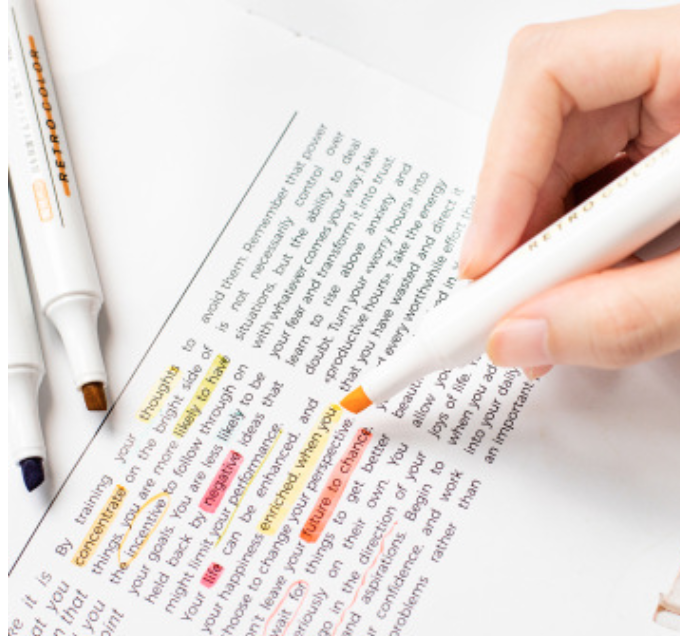 RETRO COLOR
RETRO COLOR
By training your thoughts to
concentrate on the bright side of
things, you are more likely to have
the incentive to follow through on
your goals. You are less likely to be
held back by negative ideas that
might limit your performance.
Your life can be enhanced and
your happiness enriched, when you
choose to change your perspective.
leave your future to chance.
wait for things to get better
on their own. You
in the direction of your
and aspirations. Begin to
confidence, and work
problems rather than
avoid them. Remember that power
is not necessarily control over
situations, but the ability to deal
with whatever comes your way. Take
your fear and transform it into trust.
learn to rise above anxiety and
doubt. Turn your «worry hours» into
«productive hours». Take the energy
that you have wasted and direct it
every worthwhile effort
allow
joys of life.
when you
into your daily
an important